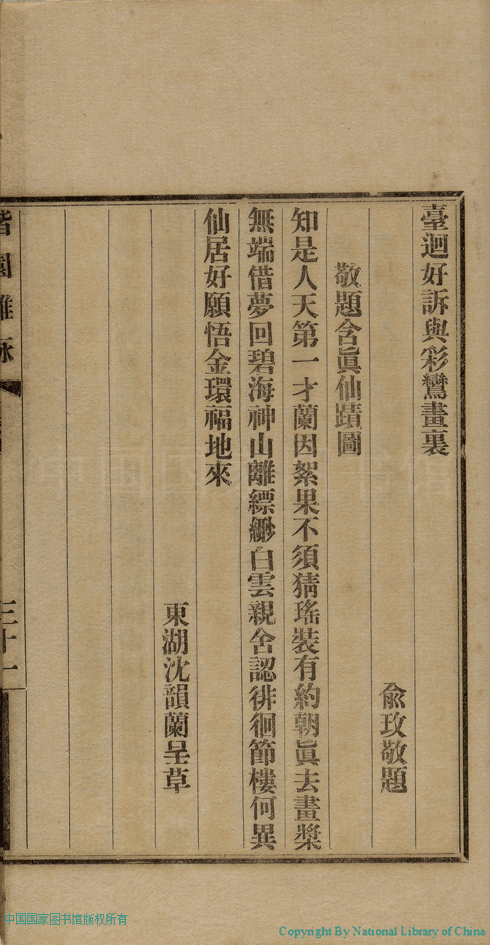 臺迴好訴與彩鸞畫裏
俞玫敬題
敬題含眞仙蹟圖
知是人天第一才蘭因絮果不須猜瑤裝有約朝眞去畫槳
無端借夢回碧海神山離縹緲白雲親舍認徘徊節樓何異
仙居好願悟金環福地來
東湖沈韻蘭呈草
三十一
中国国家图书馆版权所有
Copyright By National Library of China